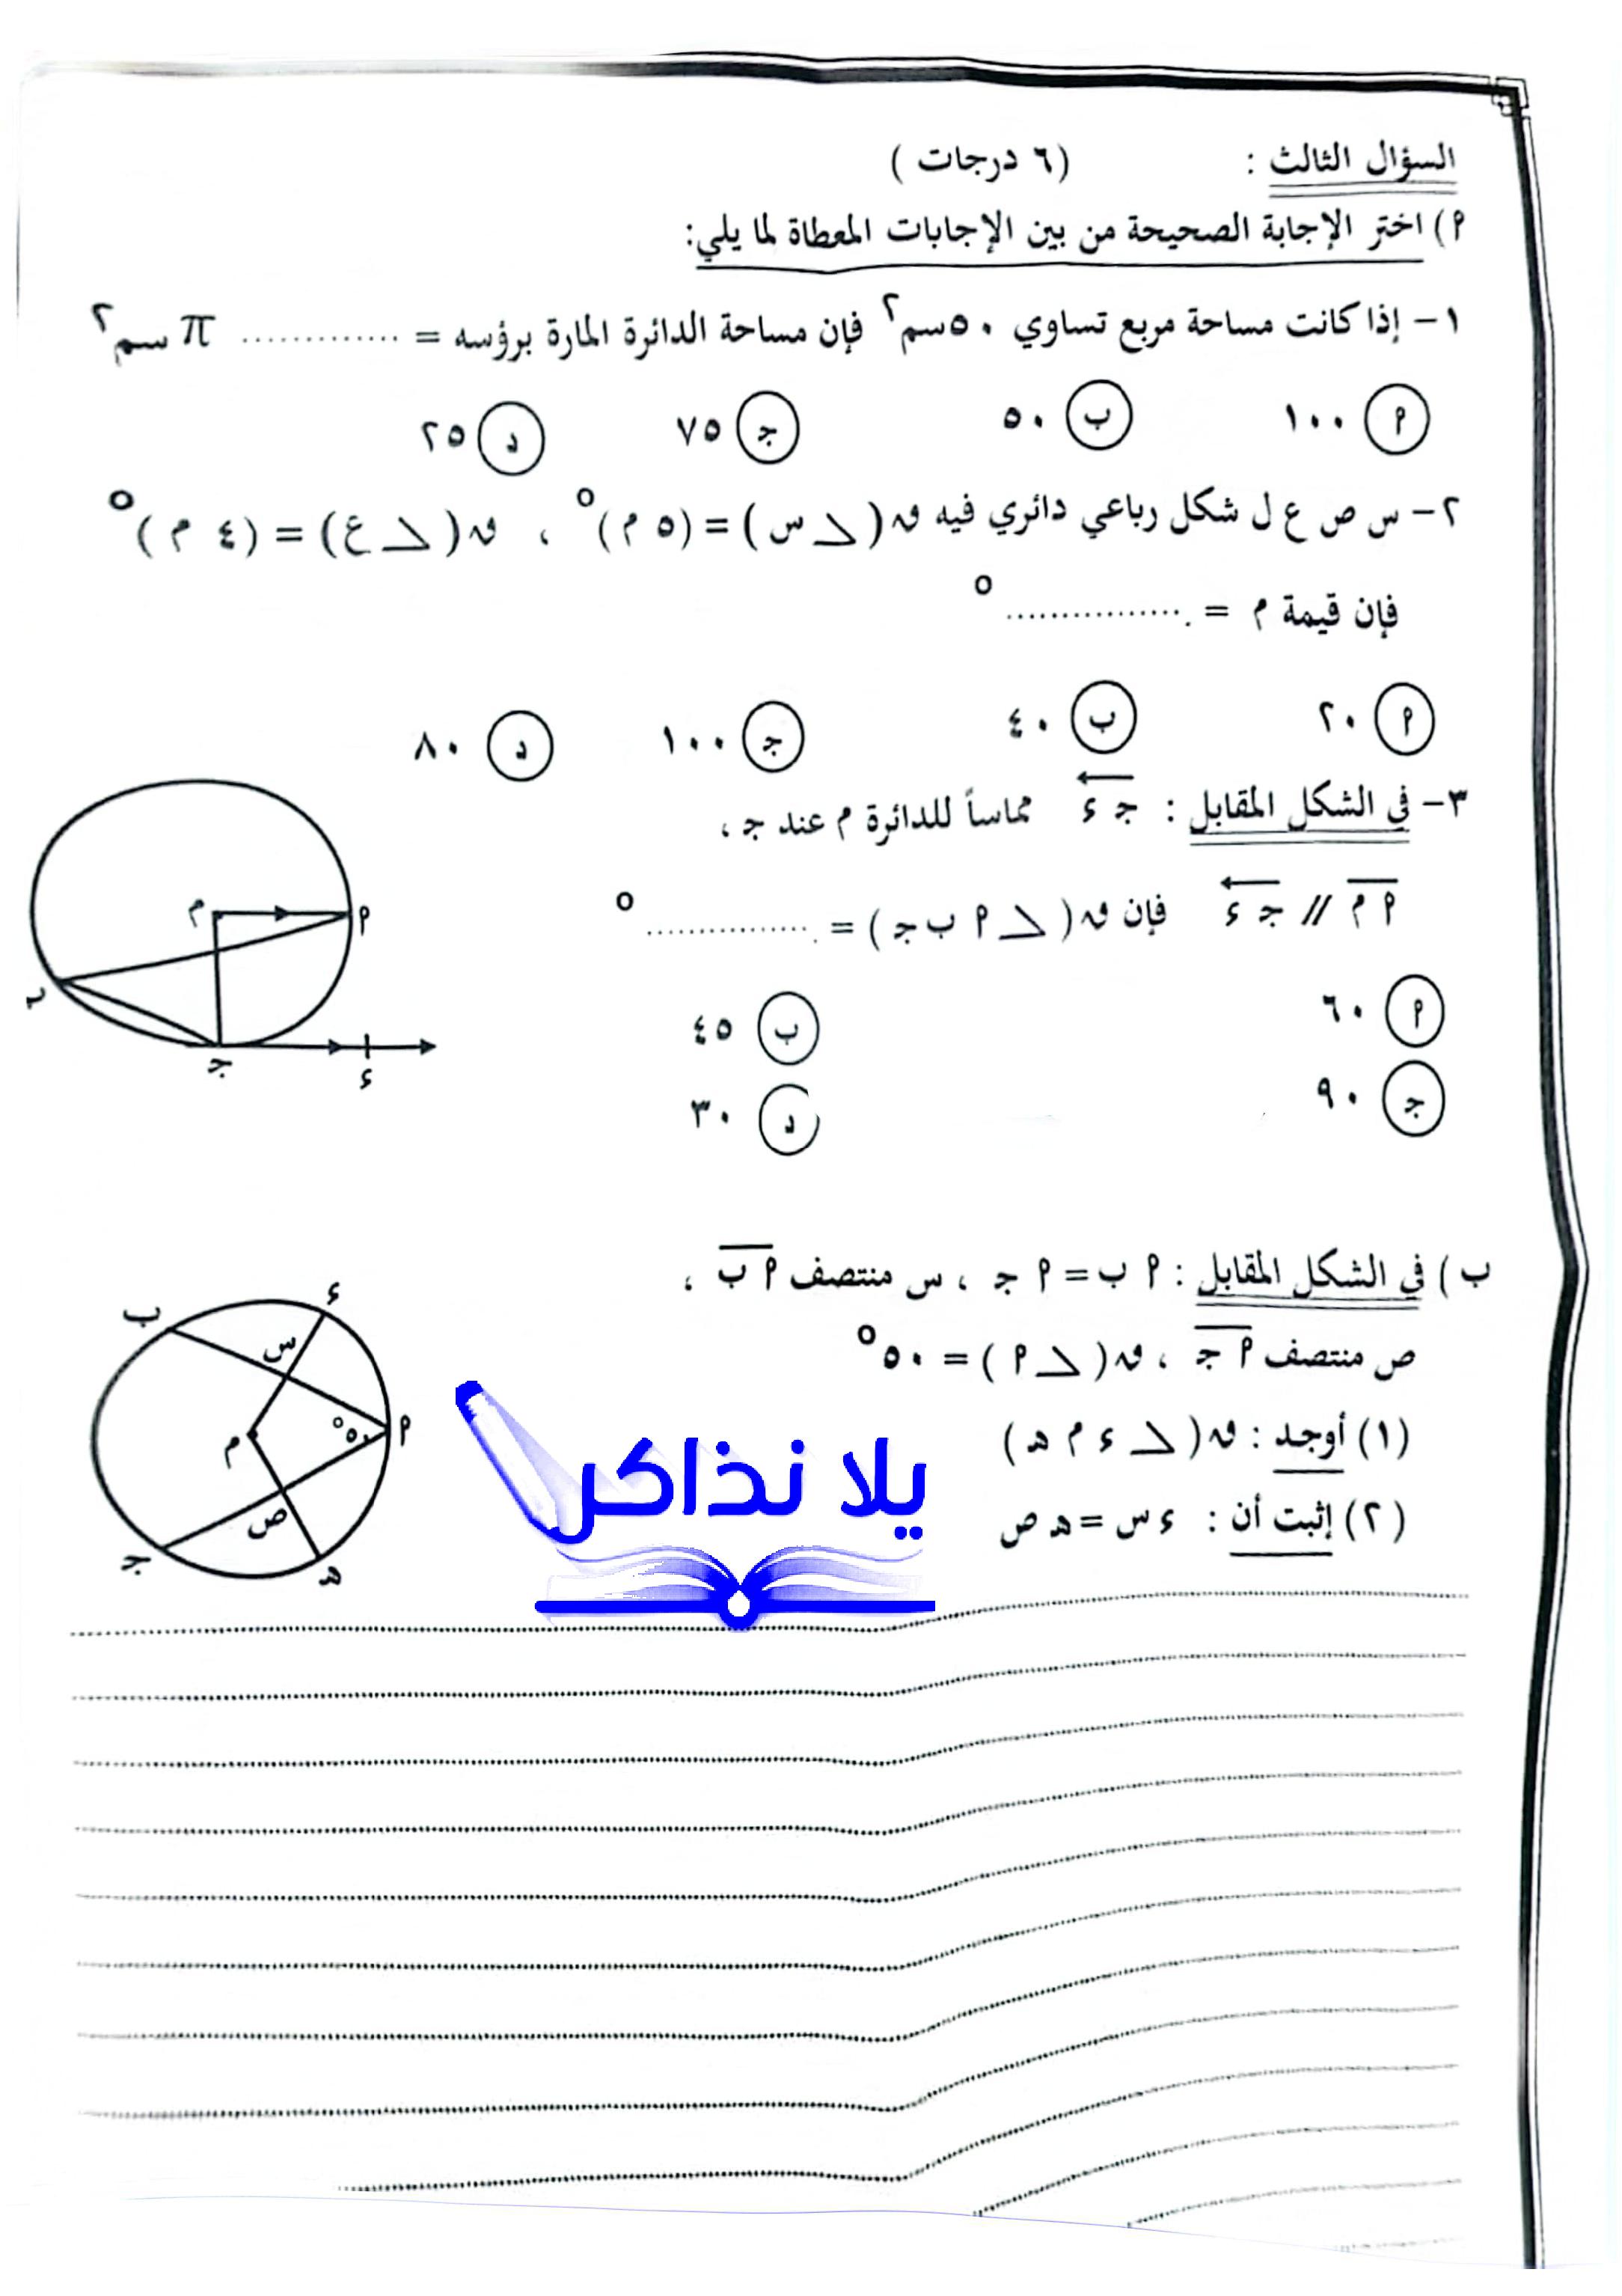 السؤال الثالث : (٦ درجات )
٩) اختر الإجابة الصحيحة من بين الإجابات المعطاة لما يلي:
١- إذا كانت مساحة مربع تساوي ٥٠سم٢ فإن مساحة الدائرة المارة برؤسه = ............. π سم٢
٩ ١٠٠ ب ٥٠ ج ٧٥ د ٢٥
٢- س ص ع ل شكل رباعي دائري فيه ق(∠ س) = (٥ م)° ، ق(∠ ع) = (٤ م)°
فإن قيمة م = ................°
٩ ٢٠ ب ٤٠ ج ١٠٠ د ٨٠
٣- في الشكل المقابل : ج ء مماساً للدائرة م عند ج ،
٩ م // ج ء فإن ق(∠ ٩ ب ج) = ................°
٩ ٦٠ ب ٤٥
ج ٩٠ د ٣٠
م ٩ ب ج ء
ب ) في الشكل المقابل : ٩ ب = ٩ ج ، س منتصف ٩ ب ،
ص منتصف ٩ ج ، ق(∠ ٩) = ٥٠°
(١) أوجد : ق(∠ ء م هـ)
(٢) إثبت أن : ء س = هـ ص
ء ب س م ٥٠° ٩ ص ج هـ
يلا نذاكر